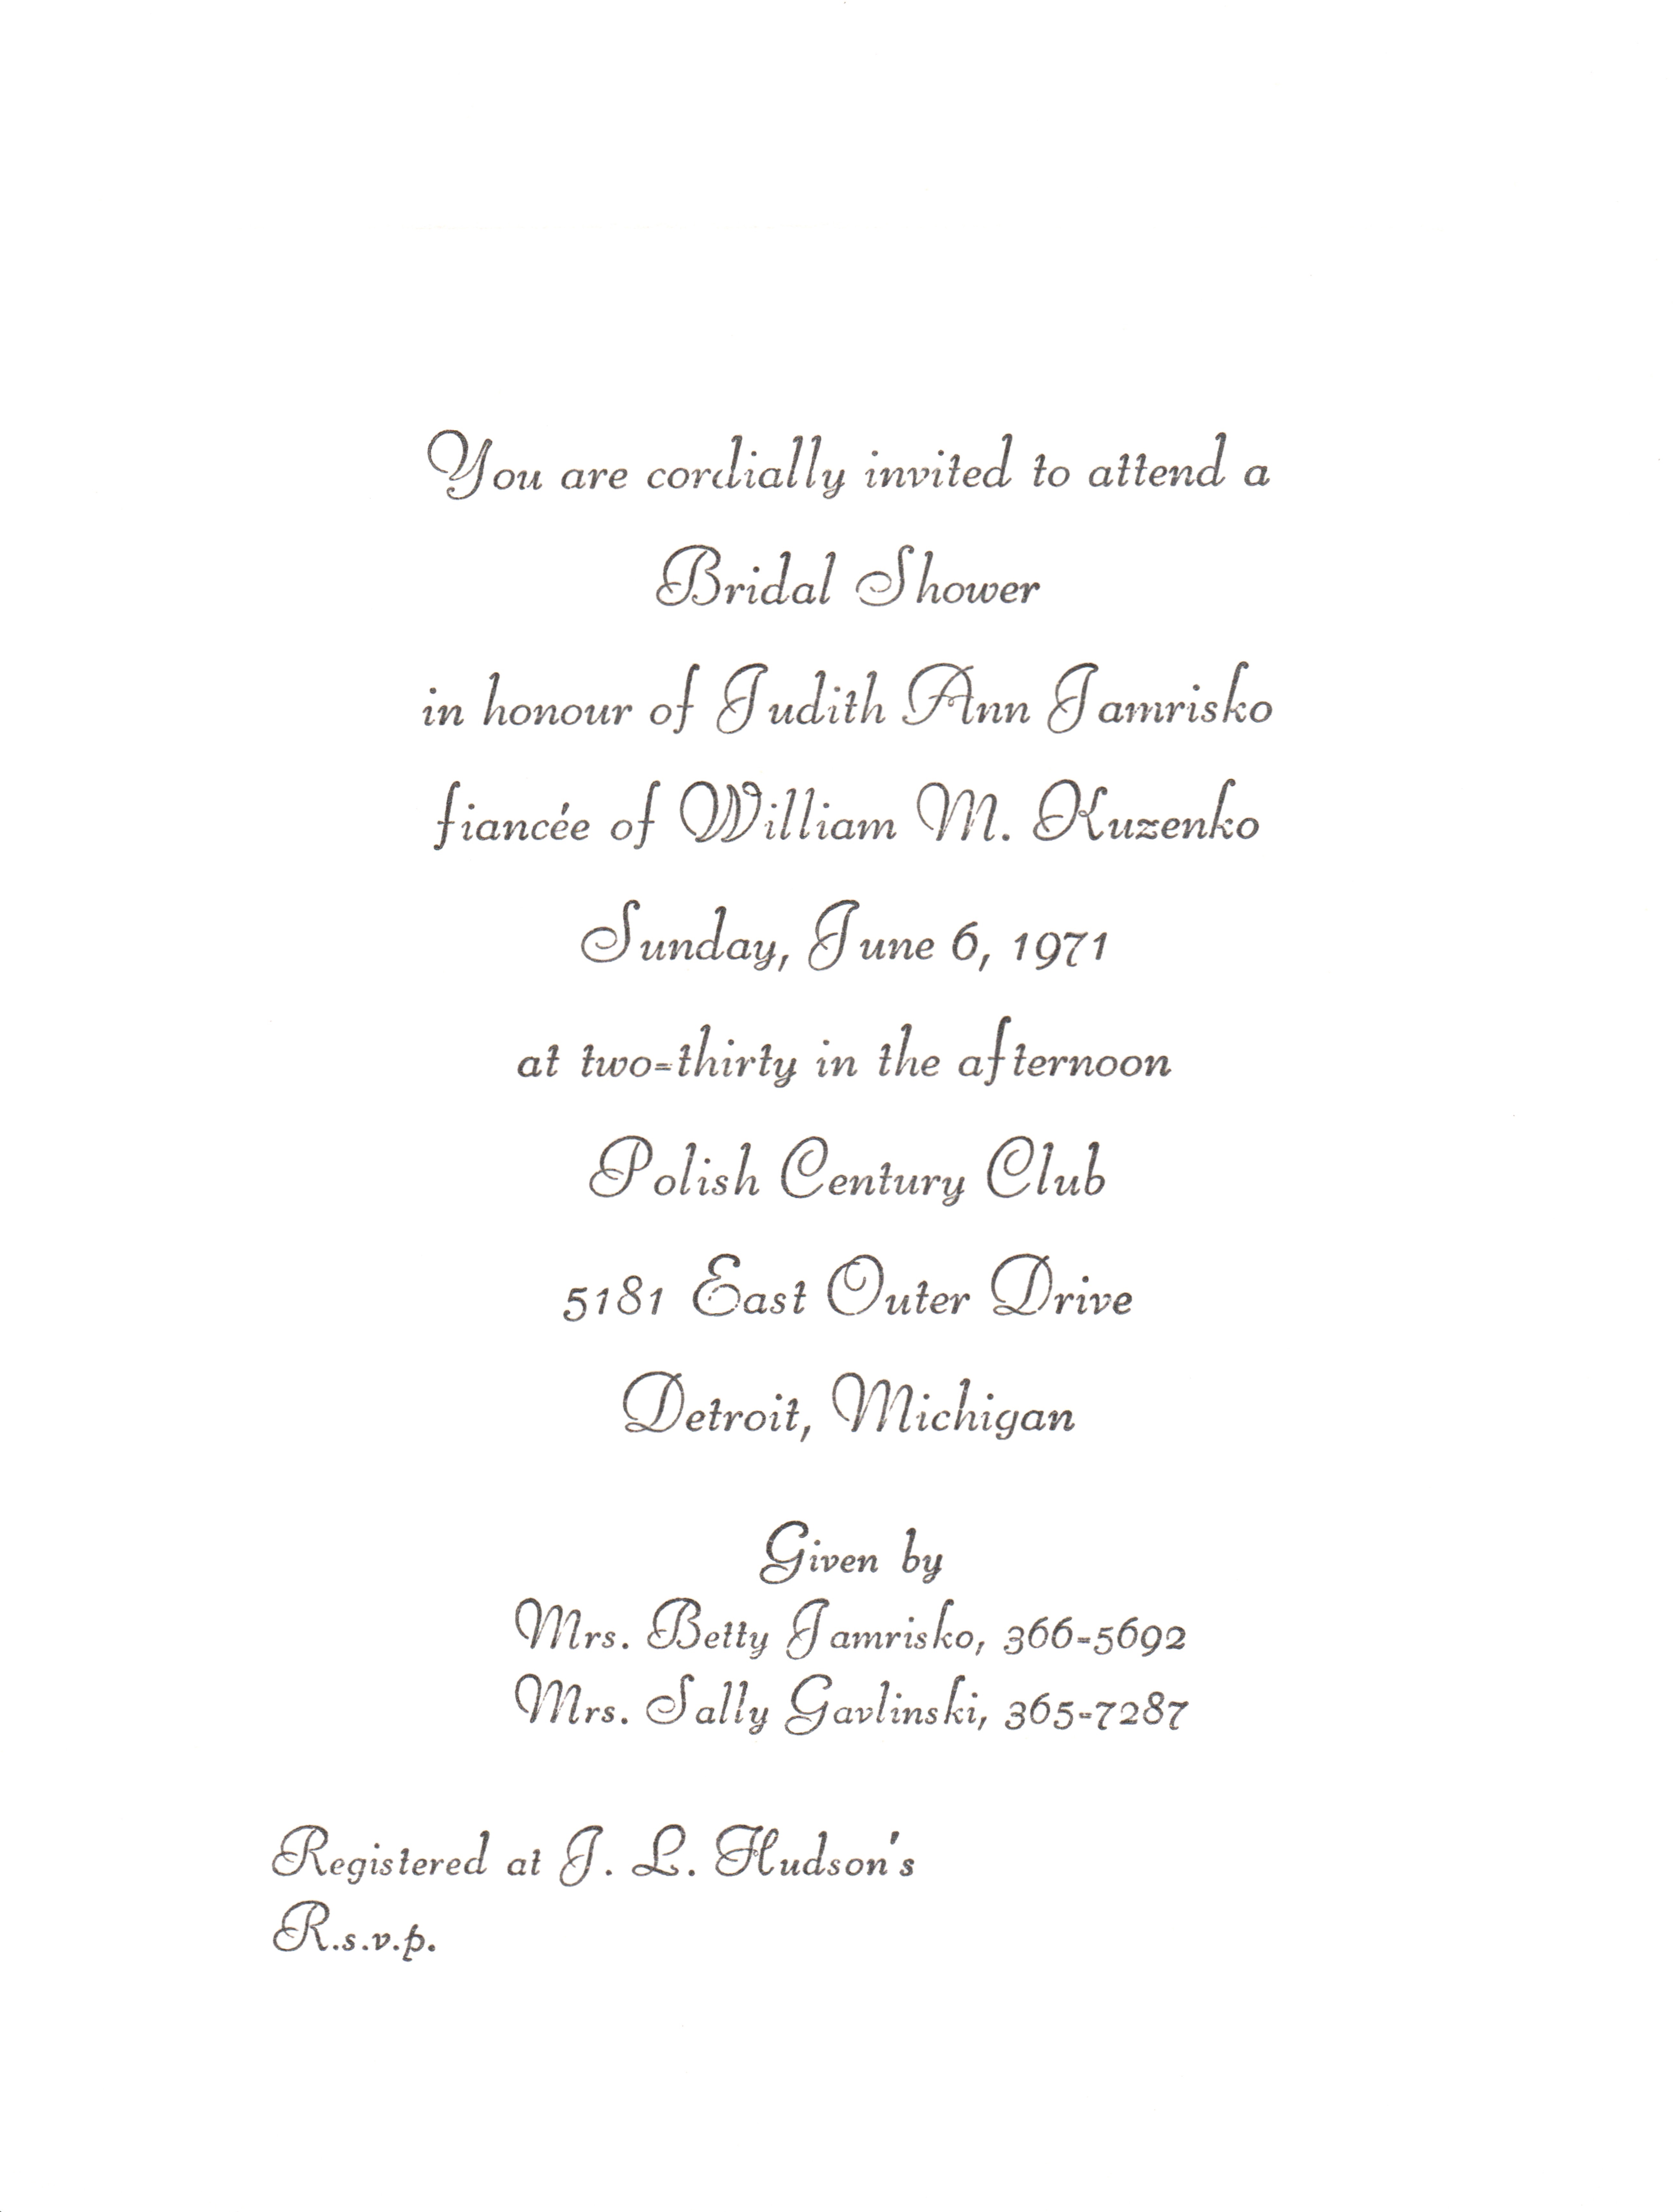 You are cordially invited to attend a
Bridal Shower
in honour of Judith Ann Jamrisko
fiancée of William M. Kuzenko
Sunday, June 6, 1971
at two-thirty in the afternoon
Polish Century Club
5181 East Outer Drive
Detroit, Michigan
Given by
Mrs. Betty Jamrisko, 366-5692
Mrs. Sally Gavlinski, 365-7287
Registered at J. L. Hudson's
R.s.v.p.